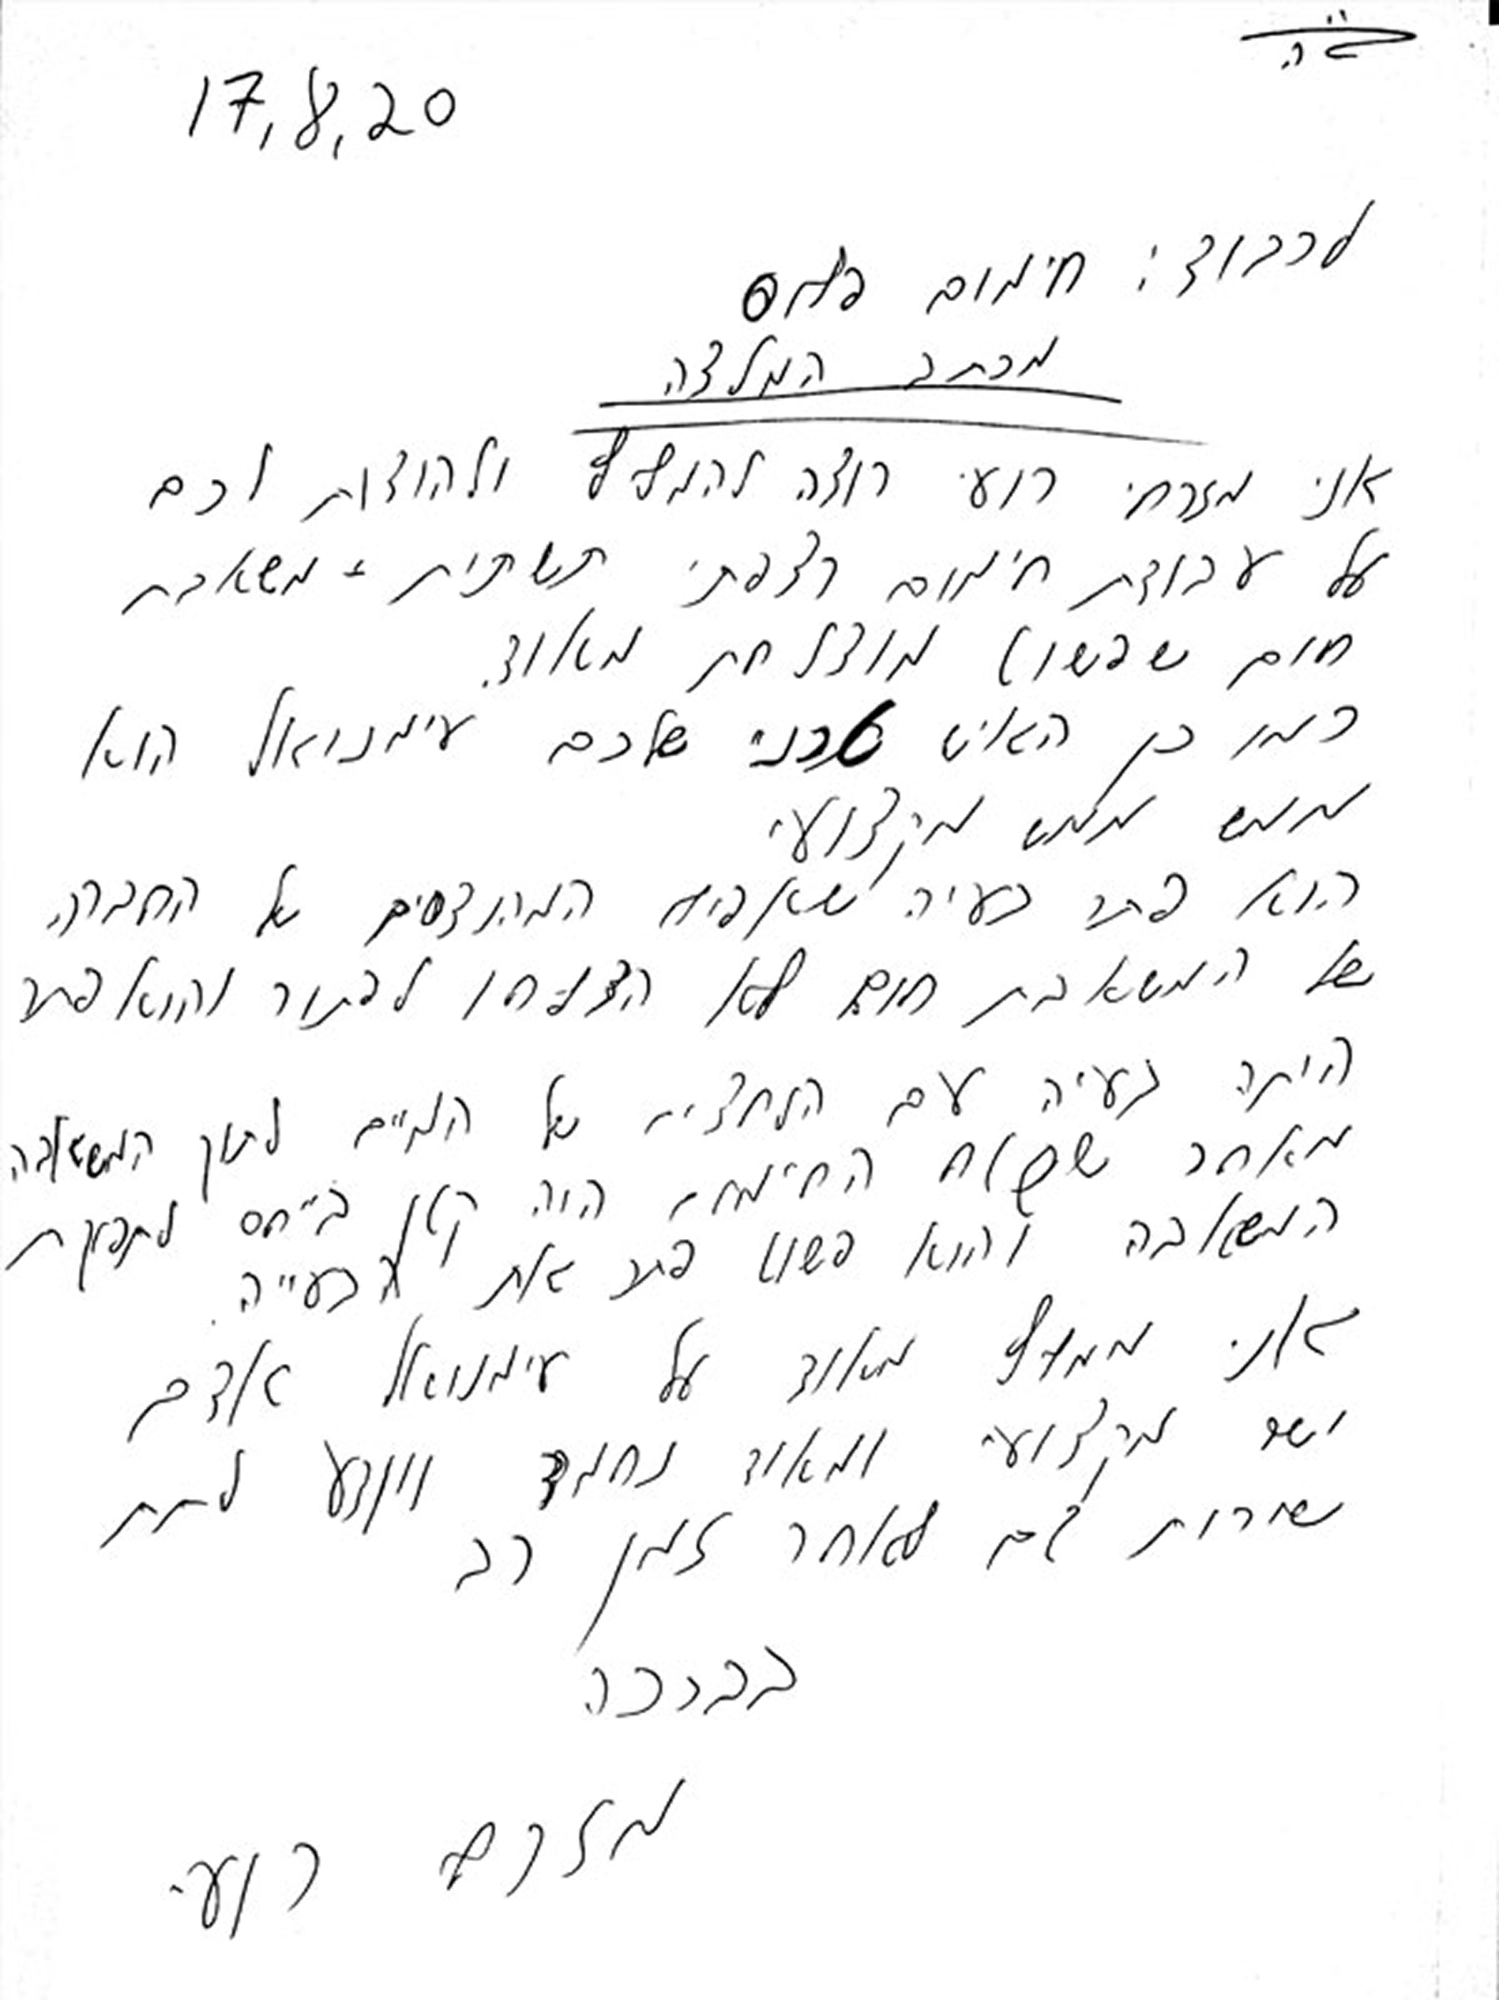 ב"ה
17,8,20
לכבוד: חימום פלוס
מכתב המלצה
אני מזרחי רועי רוצה להמליץ ולהודות לכם
על עבודת חימום רצפתי תשתית + משאבת
חום שפשוט מוצלחת מאוד.
כמו כן האיש טכני שלכם עימנואל הוא
ממש ממש מקצועי
הוא פתר בעיה שאפילו המהנדסים של החברה
של המשאבת חום לא הצליחו לפתור והוא פתר
היתה בעיה עם הלחצים של המיים לתוך המשאבה
מאחר שקוח החימום היה קטן ביחס לתפוקת
המשאבה והוא פשוט פתר את הבעייה.
אני ממליץ מאוד על עימנואל אדם
ישר מקצועי ומאוד נחמד ויודע לתת
שירות גם לאחר זמן רב
בברכה
מזרחי רועי